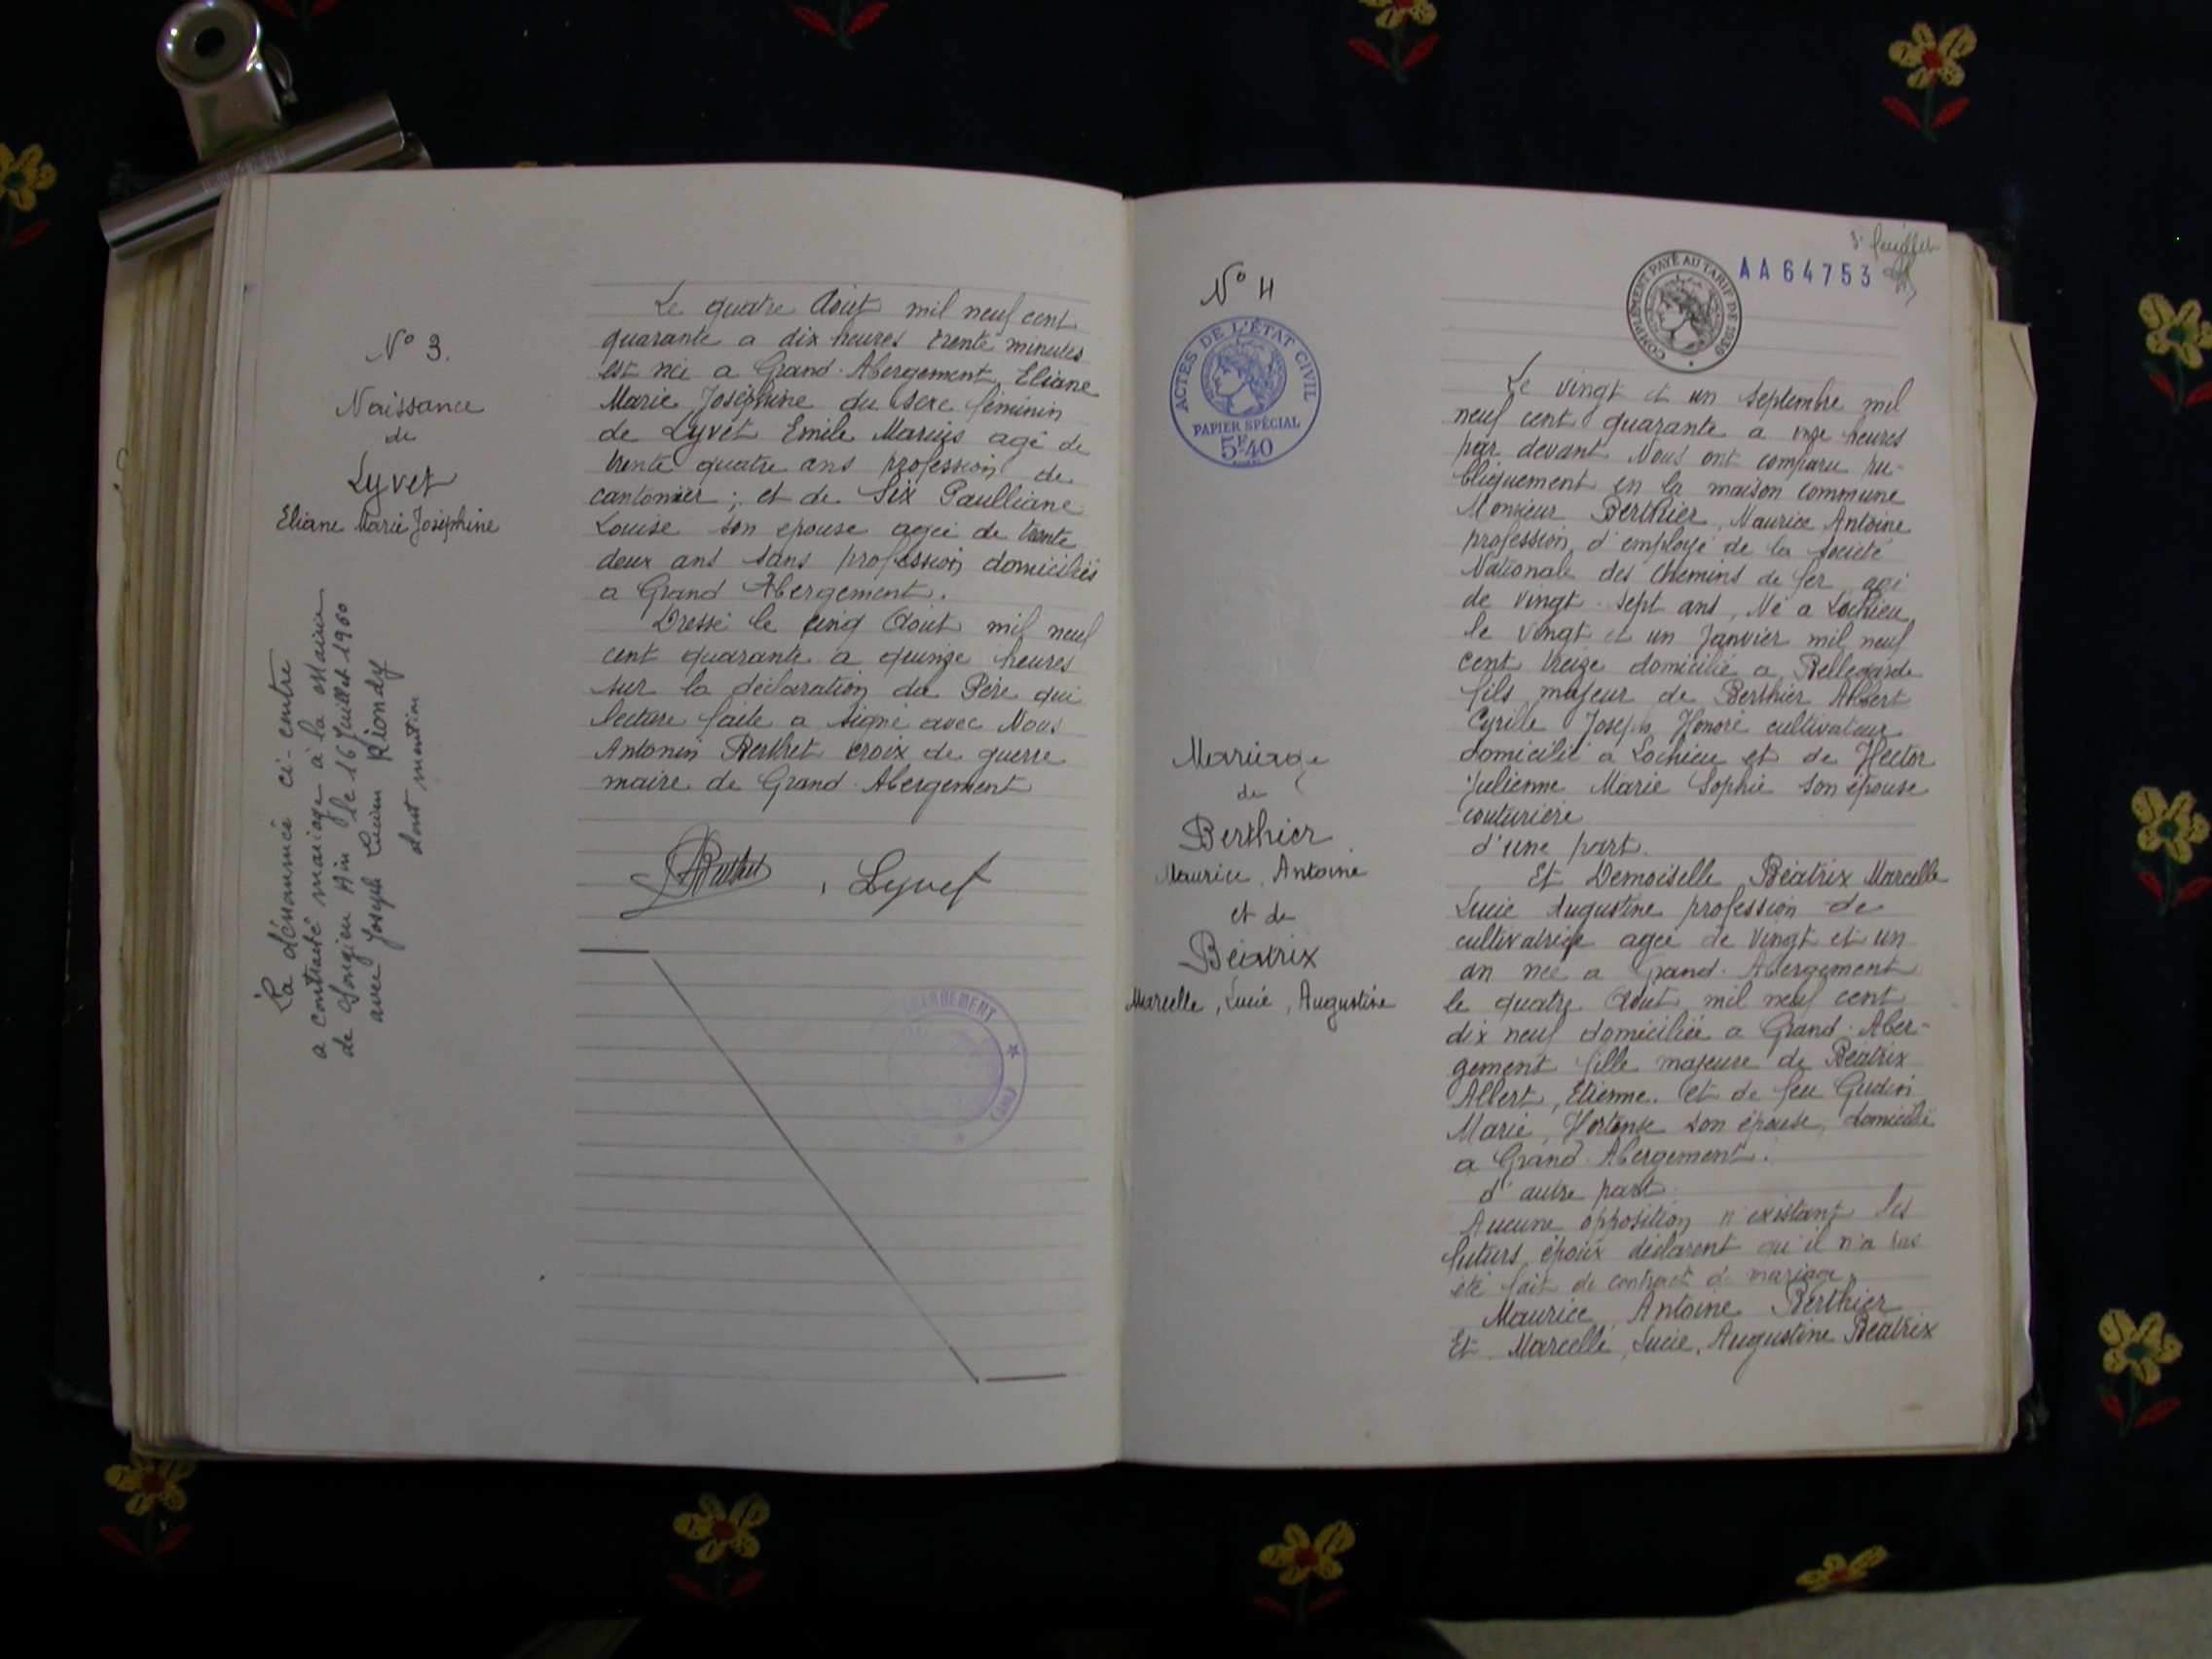 N° 3.
Naissance
de
Lyvet
Eliane Marie Joséphine
La dénommée ci-contre
a contracté mariage à la Mairie
de Songieu Ain le 16 Juillet 1960
avec Joseph Lucien Riondy
dont mention
Le quatre Aout mil neuf cent
quarante a dix heures trente minutes
est née a Grand-Abergement Eliane
Marie Joséphine du sexe féminin
de Lyvet Emile Marius agé de
trente quatre ans profession de
cantonnier ; et de Six Paulliane
Louise son epouse agée de trente
deux ans sans profession domiciliés
a Grand Abergement.
Dressé le cinq Aout mil neuf
cent quarante a quinze heures
sur la déclaration du Père qui
lecture faite a signé avec Nous
Antonin Berthet croix de guerre
maire de Grand-Abergement
Lyvet
(AIN)
N° 4
ACTES DE L'ÉTAT CIVIL
PAPIER SPÉCIAL
5F40
Mariage
de
Berthier
Maurice, Antoine
et de
Béatrix
Marcelle, Lucie, Augustine
3e feuillet
COMPLÉMENT PAYÉ AU TARIF DE 1939
AA64753
Le vingt et un septembre mil
neuf cent quarante a onze heures
par devant Nous ont comparu pu-
bliquement en la maison commune
Monsieur Berthier, Maurice Antoine
profession d'employé de la Société
Nationale des Chemins de fer agé
de vingt-sept ans, Né a Lochieu
le vingt et un Janvier mil neuf
cent treize domicilié a Bellegarde
fils majeur de Berthier Albert
Cyrille Joseph Honoré cultivateur
domicilié a Lochieu et de Hector
Julienne Marie Sophie son épouse
couturière
d'une part.
Et Demoiselle Béatrix Marcelle
Lucie Augustine profession de
cultivatrice agée de vingt et un
an née a Grand-Abergement
le quatre Aout mil neuf cent
dix neuf domiciliée a Grand-Aber-
gement fille majeure de Béatrix
Albert, Etienne. et de feu Gudin
Marie, Hortense son épouse, domicilié
a Grand Abergement.
d'autre part.
Aucune opposition n'existant les
futurs époux déclarent qu'il n'a pas
été fait de contract de mariage.
Maurice, Antoine Berthier
Et Marcelle, Lucie, Augustine Béatrix